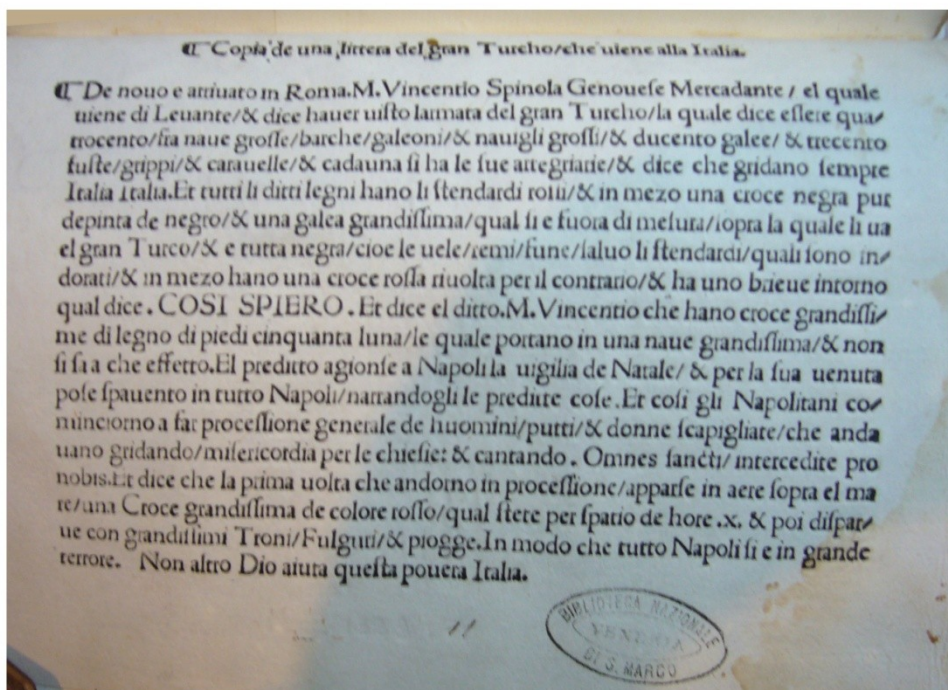 ¶ Copia de una littera del gran Turcho/che uiene alla Italia.
¶ De nouo e arriuato in Roma.M.Vincentio Spinola Genouese Mercadante/ el quale
uiene di Leuante/& dice hauer uisto larmata del gran Turcho/la quale dice essere qua/
trocento/fra naue grosse/barche/galeoni/& nauigli grossi/& ducento galee/ & trecento
fuste/grippi/& carauelle/& cadauna si ha le sue artegliarie/& dice che gridano sempre
Italia Italia.Et tutti li ditti legni hano li stendardi rossi/& in mezo una croce negra pur
depinta de negro/& una galea grandissima/qual si e fuora di mesura/sopra la quale li ua
el gran Turco/& e tutta negra/cioe le uele/remi/fune/saluo li stendardi/quali sono in/
dorati/& in mezo hano una croce rossa riuolta per il contrario/& ha uno brieue intorno
qual dice. COSI SPIERO. Et dice el ditto.M.Vincentio che hano croce grandissi/
me di legno di piedi cinquanta luna/le quale portano in una naue grandissima/& non
si sa a che effetto.El preditto agionse a Napoli la uigilia de Natale/ & per la sua uenuta
pose spauento in tutto Napoli/narrandogli le preditte cose.Et cosi gli Napolitani co/
minciorno a far processione generale de huomini/putti/& donne scapigliate/che anda
uano gridando/misericordia per le chiesie: & cantando. Omnes sancti/ intercedite pro
nobis.Et dice che la prima uolta che andorno in processione/apparse in aere sopra el ma
re/una Croce grandissima de colore rosso/qual stete per spatio de hore .x. & poi dispar/
ue con grandissimi Troni/Fulguri/& piogge.In modo che tutto Napoli si e in grande
terrore. Non altro Dio aiuta questa pouera Italia.
11
BIBLIOTECA NAZIONALE
VENEZIA
DI S. MARCO